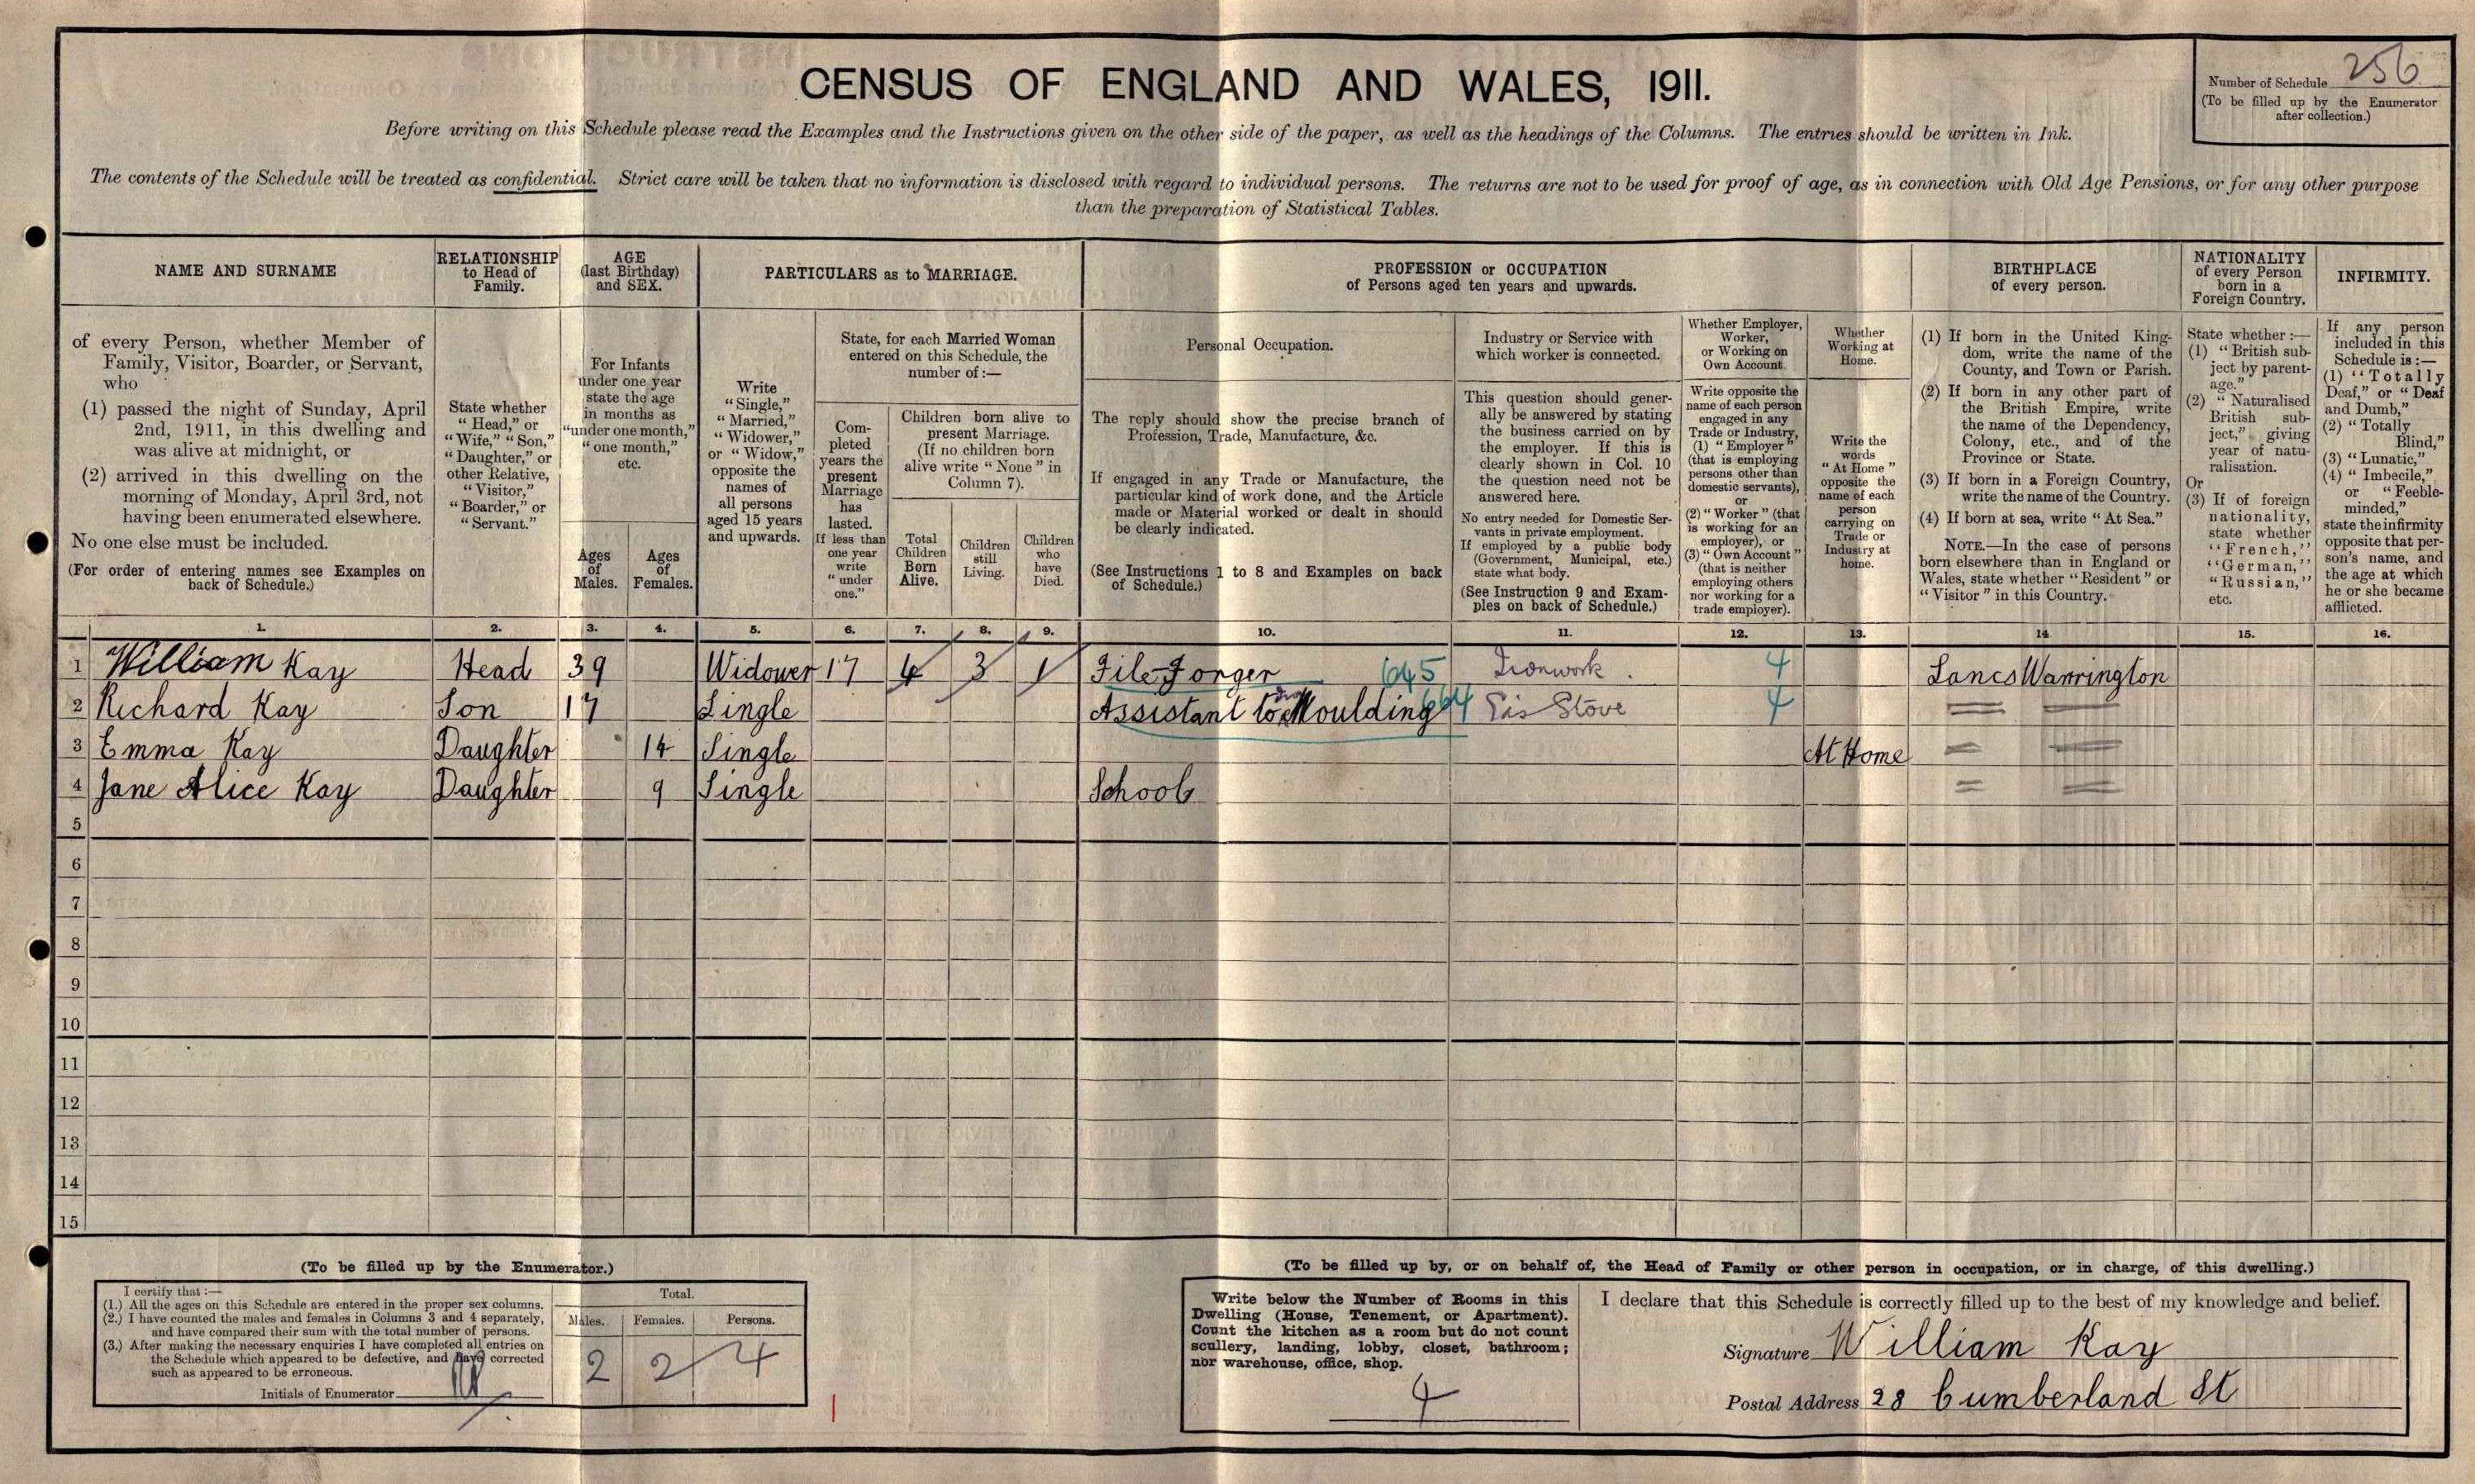 CENSUS OF ENGLAND AND WALES, 1911.
Number of Schedule 256
(To be filled up by the Enumerator
after collection.)
Before writing on this Schedule please read the Examples and the Instructions given on the other side of the paper, as well as the headings of the Columns. The entries should be written in Ink.
The contents of the Schedule will be treated as confidential. Strict care will be taken that no information is disclosed with regard to individual persons. The returns are not to be used for proof of age, as in connection with Old Age Pensions, or for any other purpose
than the preparation of Statistical Tables.
NAME AND SURNAME
of every Person, whether Member of
Family, Visitor, Boarder, or Servant,
who
(1) passed the night of Sunday, April
2nd, 1911, in this dwelling and
was alive at midnight, or
(2) arrived in this dwelling on the
morning of Monday, April 3rd, not
having been enumerated elsewhere.
No one else must be included.
(For order of entering names see Examples on
back of Schedule.)
RELATIONSHIP
to Head of
Family.
State whether
"Head," or
"Wife," "Son,"
"Daughter," or
other Relative,
"Visitor,"
"Boarder," or
"Servant."
AGE
(last Birthday)
and SEX.
For Infants
under one year
state the age
in months as
"under one month,"
"one month,"
etc.
Ages
of
Males.
Ages
of
Females.
PARTICULARS as to MARRIAGE.
Write
"Single,"
"Married,"
"Widower,"
or "Widow,"
opposite the
names of
all persons
aged 15 years
and upwards.
State, for each Married Woman
entered on this Schedule, the
number of :—
Com-
pleted
years the
present
Marriage
has
lasted.
If less than
one year
write
"under
one."
Children born alive to
present Marriage.
(If no children born
alive write "None" in
Column 7).
Total
Children
Born
Alive.
Children
still
Living.
Children
who
have
Died.
PROFESSION or OCCUPATION
of Persons aged ten years and upwards.
Personal Occupation.
The reply should show the precise branch of
Profession, Trade, Manufacture, &c.
If engaged in any Trade or Manufacture, the
particular kind of work done, and the Article
made or Material worked or dealt in should
be clearly indicated.
(See Instructions 1 to 8 and Examples on back
of Schedule.)
Industry or Service with
which worker is connected.
This question should gener-
ally be answered by stating
the business carried on by
the employer. If this is
clearly shown in Col. 10
the question need not be
answered here.
No entry needed for Domestic Ser-
vants in private employment.
If employed by a public body
(Government, Municipal, etc.)
state what body.
(See Instruction 9 and Exam-
ples on back of Schedule.)
Whether Employer,
Worker,
or Working on
Own Account.
Write opposite the
name of each person
engaged in any
Trade or Industry,
(1) "Employer"
(that is employing
persons other than
domestic servants),
or
(2) "Worker" (that
is working for an
employer), or
(3) "Own Account"
(that is neither
employing others
nor working for a
trade employer).
Whether
Working at
Home.
Write the
words
"At Home"
opposite the
name of each
person
carrying on
Trade or
Industry at
home.
BIRTHPLACE
of every person.
(1) If born in the United King-
dom, write the name of the
County, and Town or Parish.
(2) If born in any other part of
the British Empire, write
the name of the Dependency,
Colony, etc., and of the
Province or State.
(3) If born in a Foreign Country,
write the name of the Country.
(4) If born at sea, write "At Sea."
NOTE.—In the case of persons
born elsewhere than in England or
Wales, state whether "Resident" or
"Visitor" in this Country.
NATIONALITY
of every Person
born in a
Foreign Country.
State whether :—
(1) "British sub-
ject by parent-
age."
(2) "Naturalised
British sub-
ject," giving
year of natu-
ralisation.
Or
(3) If of foreign
nationality,
state whether
"French,"
"German,"
"Russian,"
etc.
INFIRMITY.
If any person
included in this
Schedule is :—
(1) "Totally
Deaf," or "Deaf
and Dumb,"
(2) "Totally
Blind,"
(3) "Lunatic,"
(4) "Imbecile,"
or "Feeble-
minded,"
state the infirmity
opposite that per-
son's name, and
the age at which
he or she became
afflicted.
1. 2. 3. 4. 5. 6. 7. 8. 9. 10. 11. 12. 13. 14 15. 16.
1 William Kay Head 39 Widower 17 4 3 1 File Forger 645 Ironwork. 4 Lancs Warrington
2 Richard Kay Son 17 Single Assistant to Iron Moulding 664 Gas Stove 4 = =
3 Emma Kay Daughter 14 Single At Home = =
4 Jane Alice Kay Daughter 9 Single School = =
5
6
7
8
9
10
11
12
13
14
15
(To be filled up by the Enumerator.)
I certify that :—
(1.) All the ages on this Schedule are entered in the proper sex columns.
(2.) I have counted the males and females in Columns 3 and 4 separately,
and have compared their sum with the total number of persons.
(3.) After making the necessary enquiries I have completed all entries on
the Schedule which appeared to be defective, and have corrected
such as appeared to be erroneous.
Initials of Enumerator
Total.
Males. Females. Persons.
2 2 4
(To be filled up by, or on behalf of, the Head of Family or other person in occupation, or in charge, of this dwelling.)
Write below the Number of Rooms in this
Dwelling (House, Tenement, or Apartment).
Count the kitchen as a room but do not count
scullery, landing, lobby, closet, bathroom;
nor warehouse, office, shop.
4
I declare that this Schedule is correctly filled up to the best of my knowledge and belief.
Signature William Kay
Postal Address 28 Cumberland St